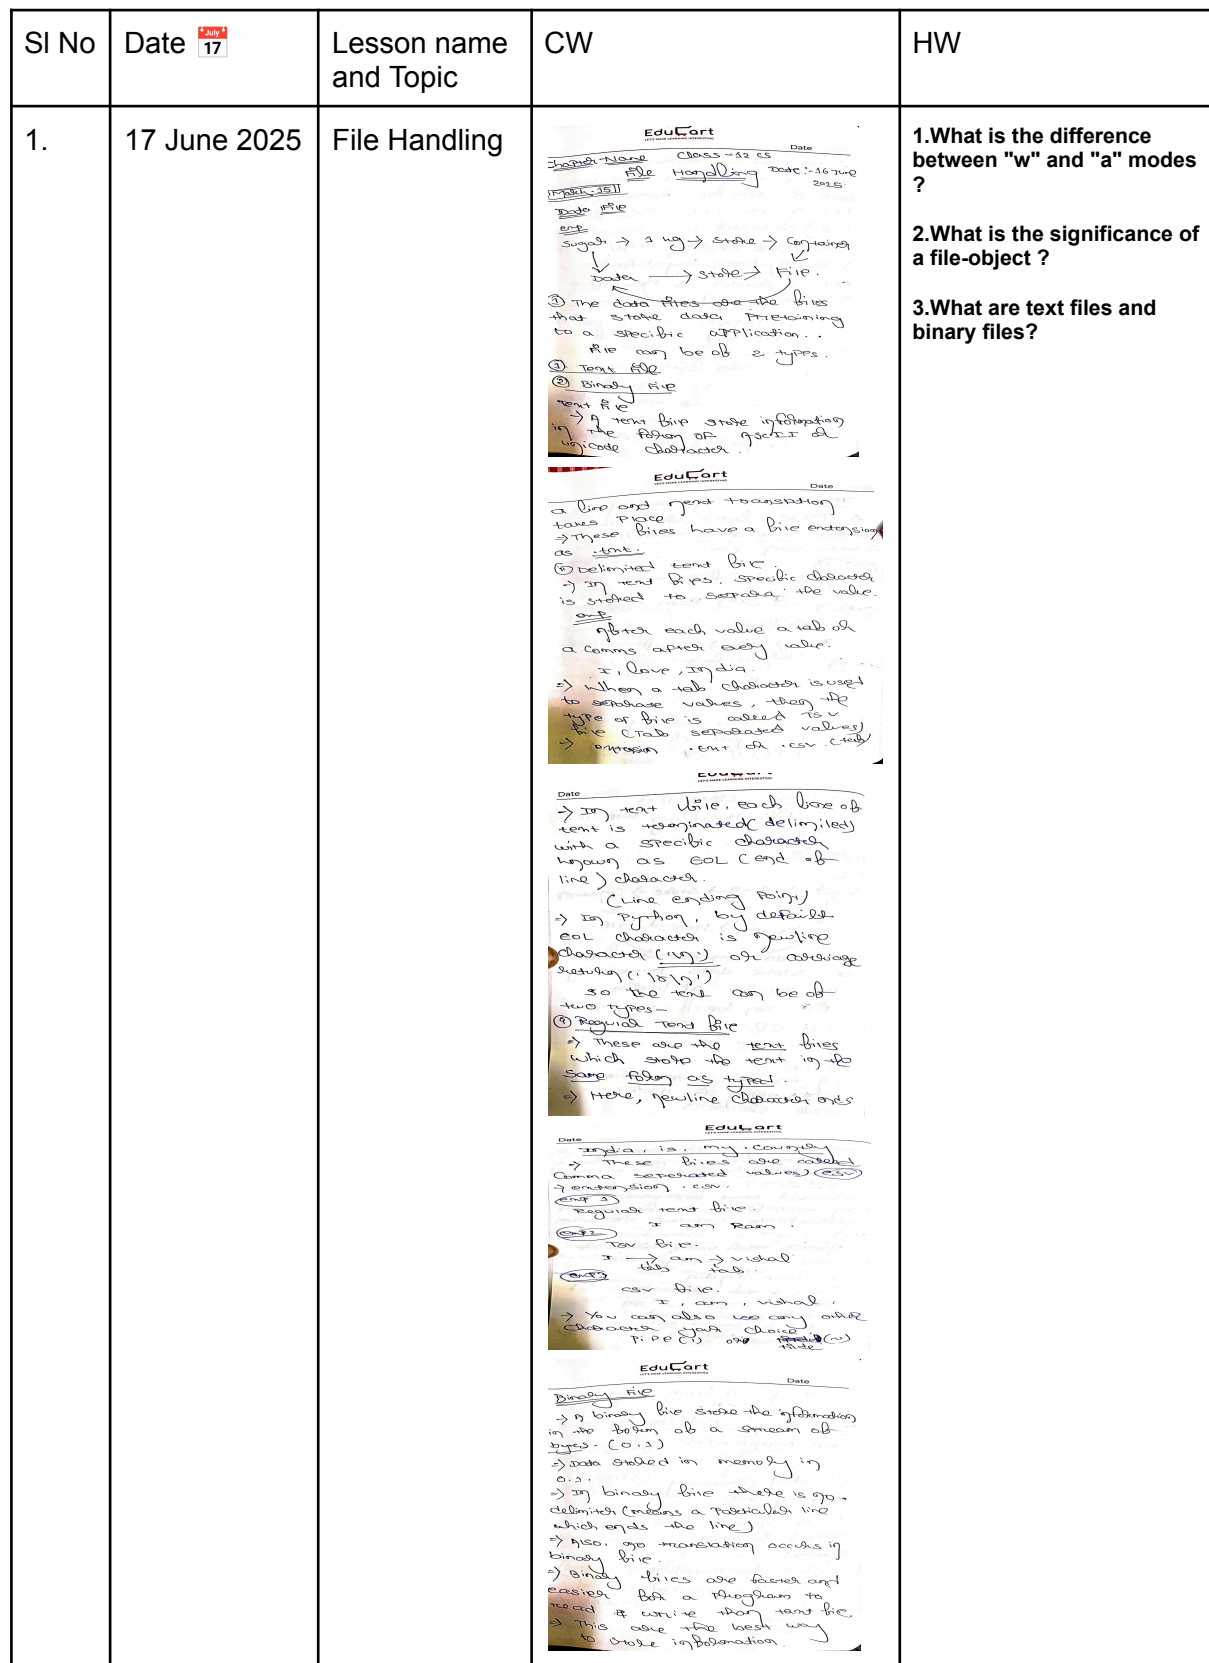 Sl No
Date
July
17
Lesson name
and Topic
CW
HW
1.
17 June 2025
File Handling
EduCart
LET'S MAKE LEARNING INTERESTING
Date
Chapter Name Class - 12 CS
File Handling Date :- 16 June
2025
March - 15
Data File
Sugar → 1 kg → store → Container
Data → store → File.
① The data files are the files
that store data
to a specific application..
File can be of 2 types.
① Text File
② Binary File
Text File
→ A text file store information
in the form of ASCII or
unicode character.
EduCart
LET'S MAKE LEARNING INTERESTING
Date
a line and translation
takes place
⇒ These files have a file extension
as .txt.
Delimited text file.
→ In text files, specific character
is stored to the value.
After each value a tab or
a comma after every value.
I, love, India.
⇒ When a tab character is used
to separate values, then the
type of file is called TSV
file (Tab separated values)
→ extension .txt or .csv (tab)
EduCart
LET'S MAKE LEARNING INTERESTING
Date
→ In text file, each line of
text is terminated (delimited)
with a specific character
known as EOL (end of
line) character.
(Line ending point)
→ In Python, by default
EOL character is newline
character ('\n') or carriage
return ('\r\n')
so the text can be of
two types-
Regular Text File
⇒ These are the text files
which store the text in the
same form as typed.
⇒ Here, newline character ends
EduCart
LET'S MAKE LEARNING INTERESTING
Date
India, is, my, country
⇒ These files are called
Comma separated values) (CSV)
→ extension .csv.
Regular text file.
I am Ram.
TSV file.
I → am → vishal
tab tab
csv file.
I, am, vishal.
→ You can also use any other
character your choice
Pipe (|) or (~)
EduCart
LET'S MAKE LEARNING INTERESTING
Date
Binary File
→ A binary file store the information
in the form of a stream of
bytes. (0.1)
⇒ Data stored in memory in
0.1.
⇒ In binary file there is no
delimiter (means a particular line
which ends the line)
⇒ Also, no translation occurs in
binary file.
⇒ Binary files are faster and
easier for a program to
read & write than text file.
⇒ This are the best way
to store information.
1.What is the difference
between "w" and "a" modes
?
2.What is the significance of
a file-object ?
3.What are text files and
binary files?